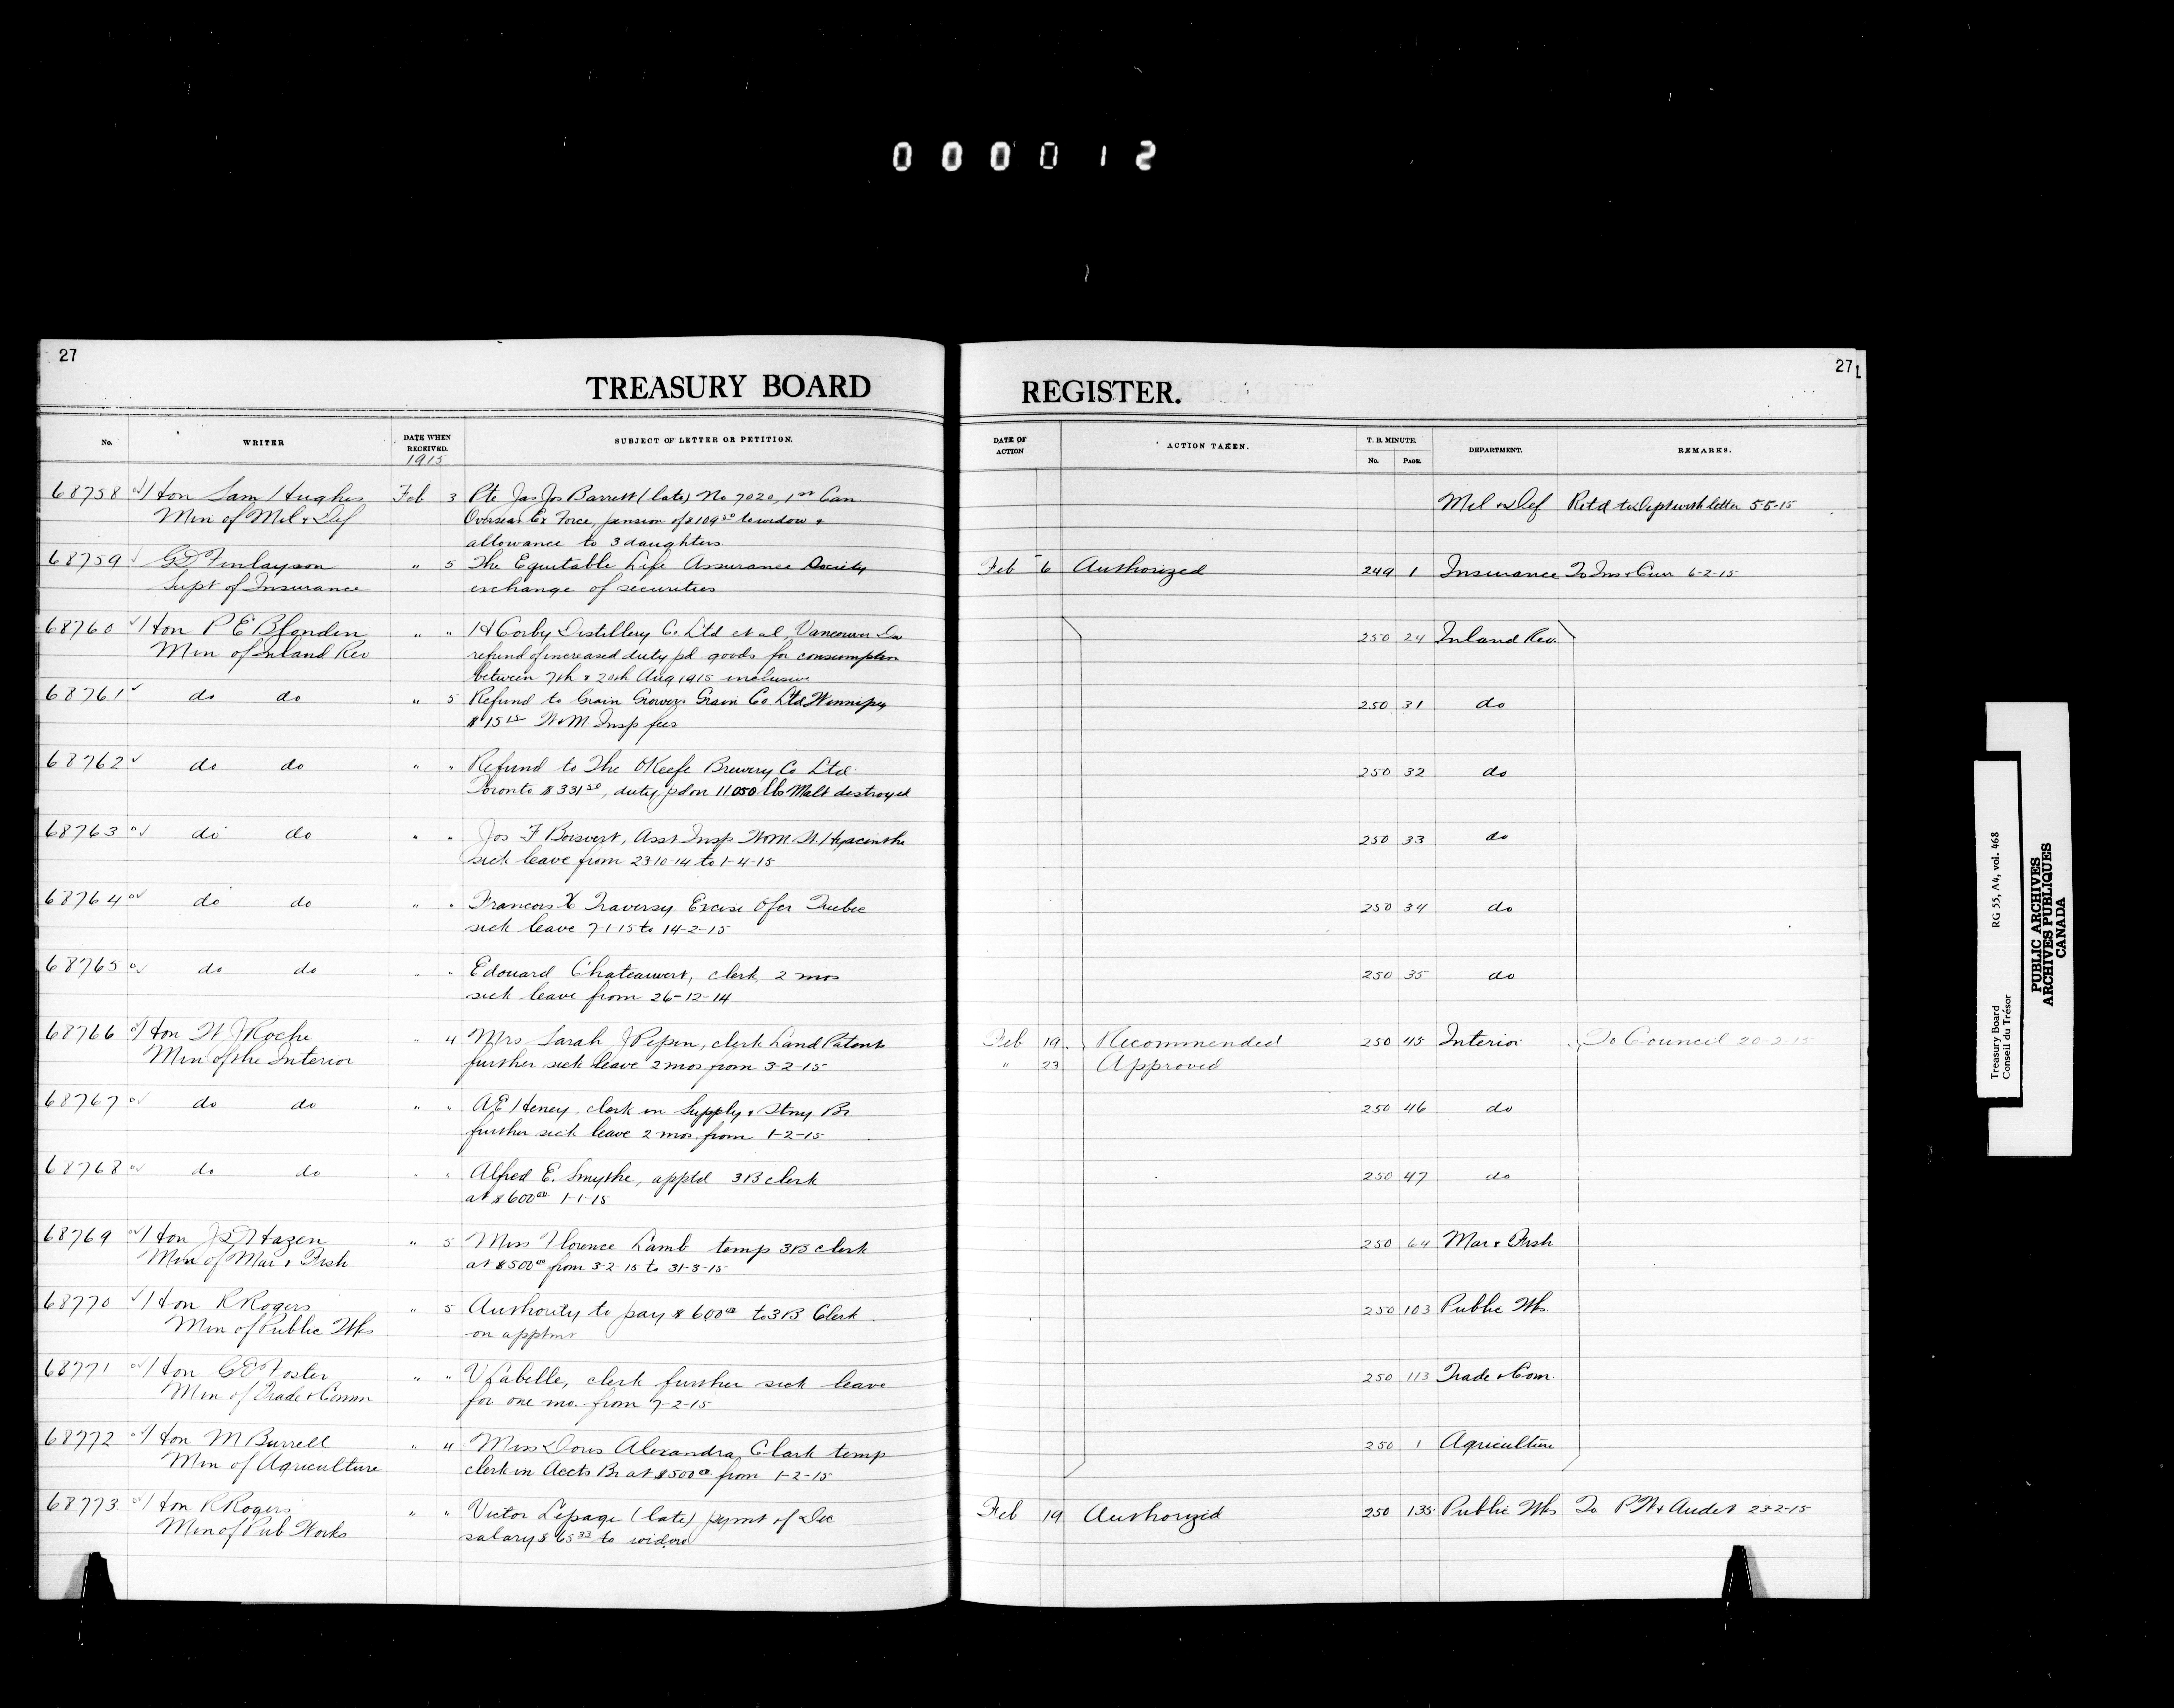 000012
27
TREASURY BOARD
No.
WRITER
DATE WHEN RECEIVED.
1915
SUBJECT OF LETTER OR PETITION.
68758 Hon Sam Hughes Feb 3 Pte Jas Jos Barrett (late) No 7020, 1st Can
Min of Mil & Def Overseas Ex Force, pension of $109 to widow &
allowance to 3 daughters
68759 G D Finlayson " 5 The Equitable Life Assurance Society
Supt of Insurance exchange of securities
68760 Hon P E Blondin " " H Corby Distillery Co Ltd et al, Vancouver
Min of Inland Rev refund of increased duty pd goods for consumption
between 7th & 20th Aug 1915 inclusive
68761 do do " 5 Refund to Grain Growers Grain Co. Ltd Winnipeg
$15 W&M Insp fees
68762 do do " " Refund to The OKeefe Brewery Co Ltd
Toronto $331 50, duty pd on 11,050 lbs Malt destroyed
68763 do do " " Jos F Boisvert, Asst Insp W&M St Hyacinthe
sick leave from 23-10-14 to 1-4-15
68764 do do " " Francois X Traversy Excise Ofcr Quebec
sick leave 7-1-15 to 14-2-15
68765 do do " " Edouard Chateauvert, clerk, 2 mos
sick leave from 26-12-14
68766 Hon W J Roche " 4 Mrs Sarah J Pepin, clerk Land Patents
Min of the Interior further sick leave 2 mos from 3-2-15
68767 do do " " A E Heney, clerk in Supply & Stny Br
further sick leave 2 mos from 1-2-15
68768 do do " " Alfred E. Smythe, apptd 3B clerk
at $600 00 1-1-15
68769 Hon J D Hazen " 5 Miss Florence Lamb temp 3B clerk
Min of Mar & Fish at $500 00 from 3-2-15 to 31-3-15
68770 Hon R Rogers " 5 Authority to pay $600 00 to 3B Clerk
Min of Public Wks on apptmt
68771 Hon G E Foster " " V Labelle, clerk further sick leave
Min of Trade & Comm for one mo. from 7-2-15
68772 Hon M Burrell " 4 Miss Doris Alexandra Clark temp
Min of Agriculture clerk in Accts Br at $500 00 from 1-2-15
68773 Hon R Rogers " " Victor Lepage (late) pymt of Dec
Min of Pub Works salary $65 33 to widow
27
REGISTER.
DATE OF ACTION
ACTION TAKEN.
T. B. MINUTE.
No. PAGE.
DEPARTMENT.
REMARKS.
Mil & Def Retd to Dept with letter 5-5-15
Feb 6 Authorized 249 1 Insurance To Ins & Curr 6-2-15
250 24 Inland Rev.
250 31 do
250 32 do
250 33 do
250 34 do
250 35 do
Feb 19 Recommended 250 45 Interior To Council 20-2-15
" 23 Approved
250 46 do
250 47 do
250 64 Mar & Fish
250 103 Public Wks
250 113 Trade & Com.
250 1 Agriculture
Feb 19 Authorized 250 135 Public Wks To P W & Audit 23-2-15
Treasury Board RG 55, A4, vol. 468
Conseil du Trésor
PUBLIC ARCHIVES
ARCHIVES PUBLIQUES
CANADA